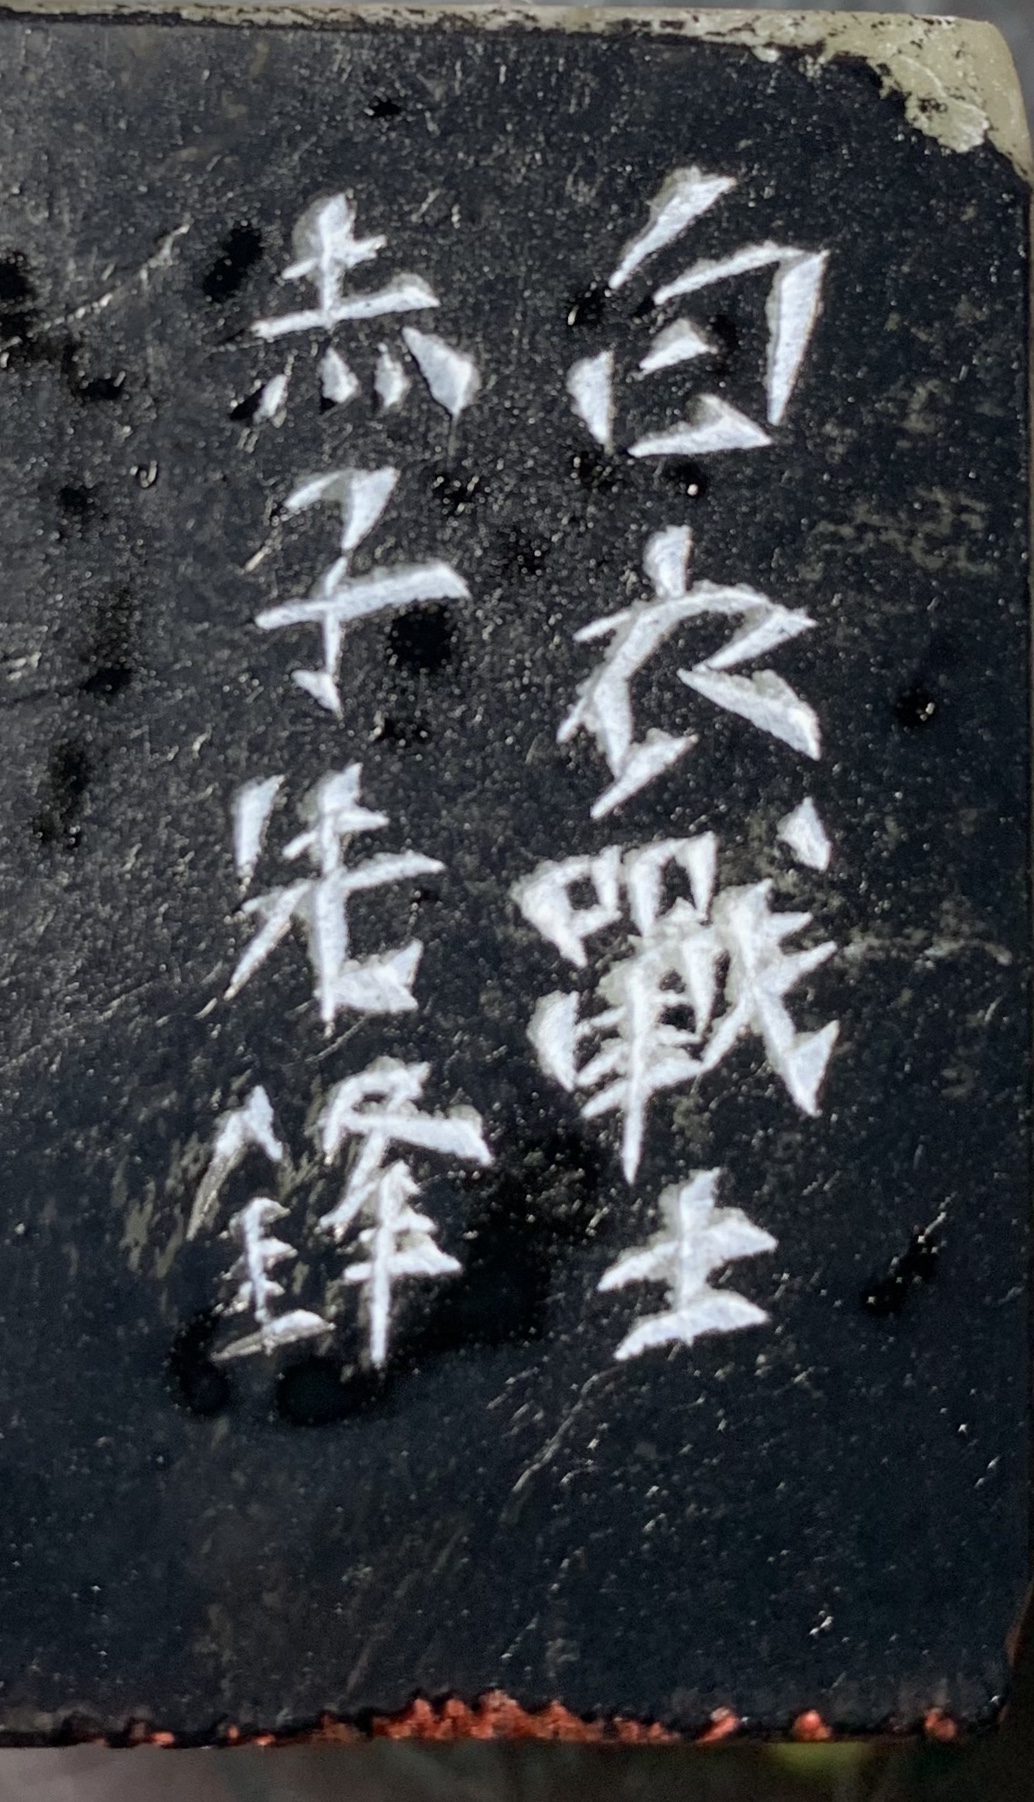 白衣戰士
赤子先鋒